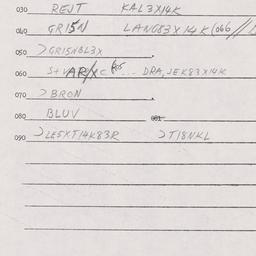 030 REJT KAL3X14K
040 GRISN LANG83X14K (066 //
050 >GRISNBL3X
060 DRA, JEK83X14K
070 >BRON
080 BLUV
090 >LESXT14K83R >T18NKL